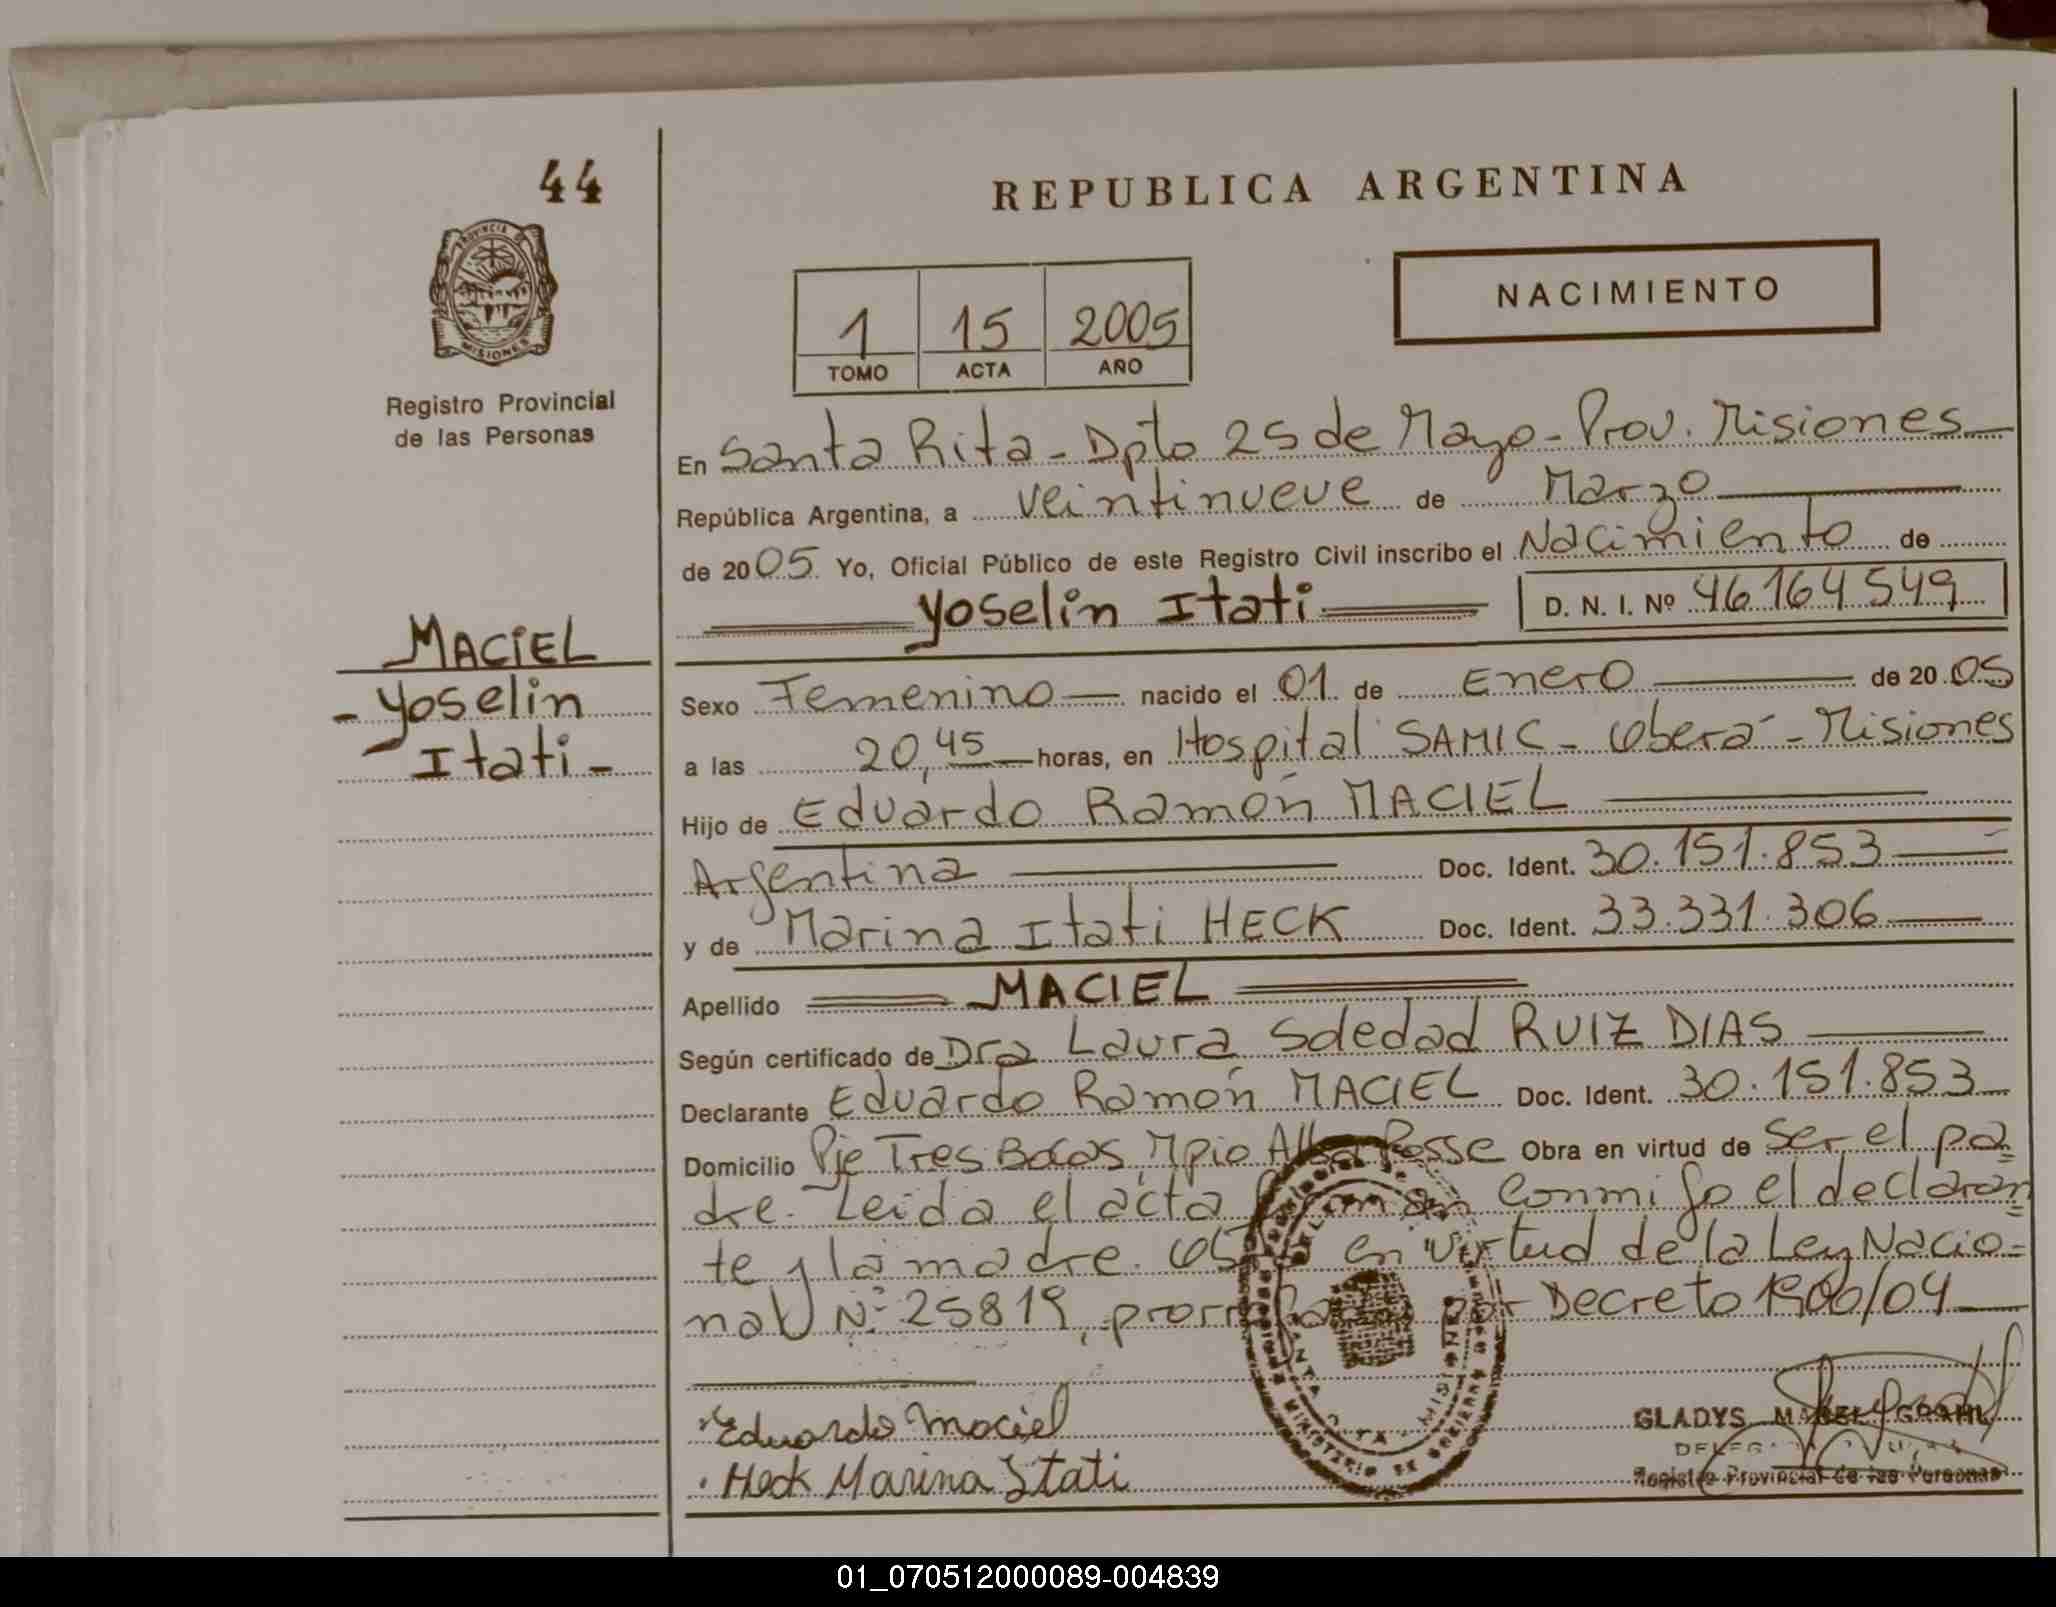 44
REPUBLICA ARGENTINA
PROVINCIA DE
MISIONES
NACIMIENTO
1 15 2005
TOMO ACTA AÑO
Registro Provincial
de las Personas
En Santa Rita - Dpto 25 de Mayo - Prov. Misiones
República Argentina, a veintinueve de Marzo
de 2005 Yo, Oficial Público de este Registro Civil inscribo el Nacimiento de
Yoselin Itati D. N. I. Nº 46164549
MACIEL
- Yoselin
Itati -
Sexo Femenino nacido el 01 de Enero de 2005
a las 20,45 horas, en Hospital SAMIC - Oberá - Misiones
Hijo de Eduardo Ramón MACIEL
Argentina Doc. Ident. 30.151.853
y de Marina Itati HECK Doc. Ident. 33.331.306
Apellido MACIEL
Según certificado de Dra Laura Soledad RUIZ DIAS
Declarante Eduardo Ramón MACIEL Doc. Ident. 30.151.853
Domicilio Pje Tres Bocas, Mpio Alba Posse Obra en virtud de ser el pa
dre. Leida el acta firman conmigo el declaran
te y la madre. en virtud de la Ley Nacio=
nal Nº 25819, por Decreto 1900/04
Eduardo Maciel
Heck Marina Itati
GLADYS MABEL
Registro Provincial de las Personas
01_070512000089-004839